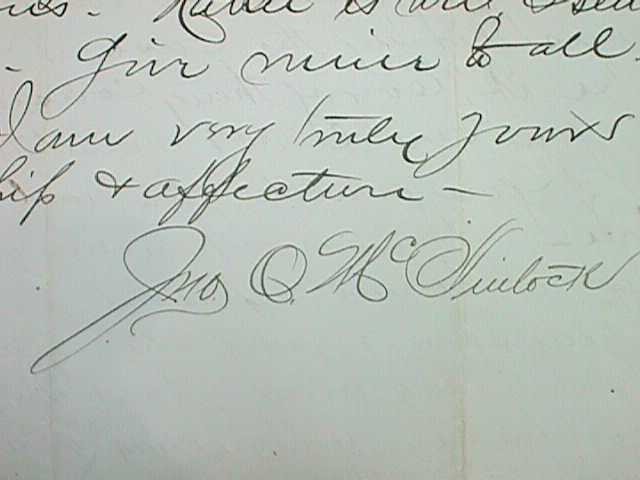 is well
- Give mine to all.
I am very truly yours
hip & affection -
Jno. Q. McCKinlock